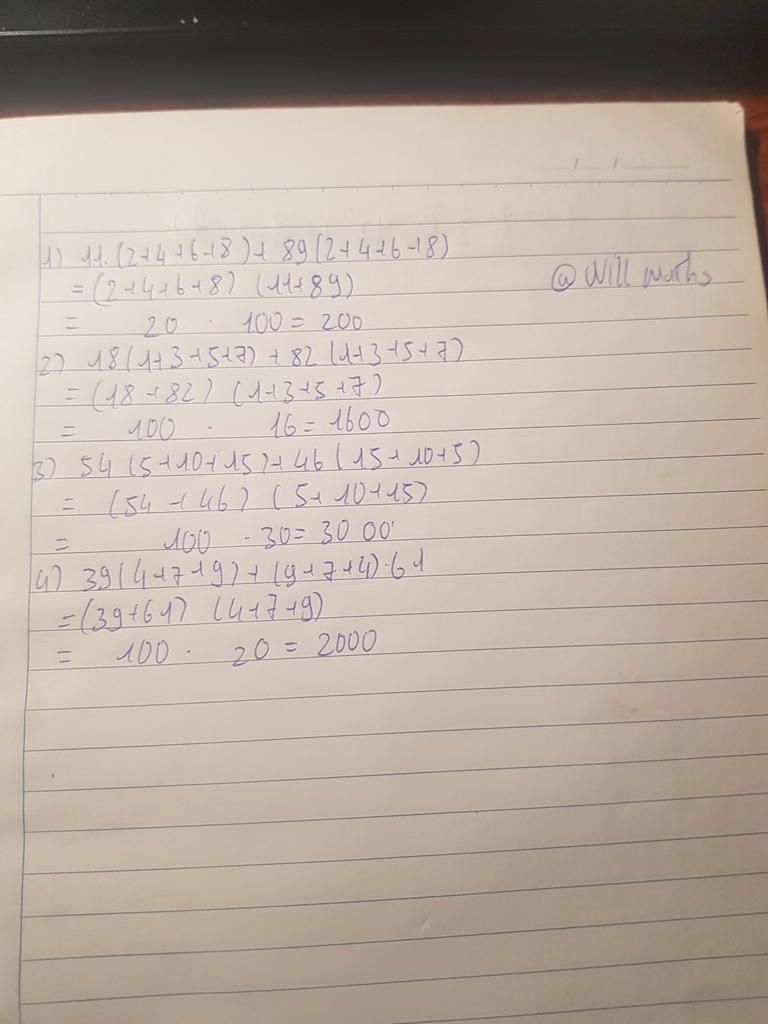 1) 11.(2+4+6+8)+ 89(2+4+6+8)
=(2+4+6+8) (11+89)
@Will maths
= 20 . 100 = 200
2) 18(1+3+5+7) + 82(1+3+5+7)
= (18+82) (1+3+5+7)
= 100 . 16 = 1600
3) 54 (5+10+15)+46(15+10+5)
= (54+46) (5+10+15)
= 100 . 30= 3000
4) 39(4+7+9)+(9+7+4).61
=(39+61) (4+7+9)
= 100 . 20 = 2000